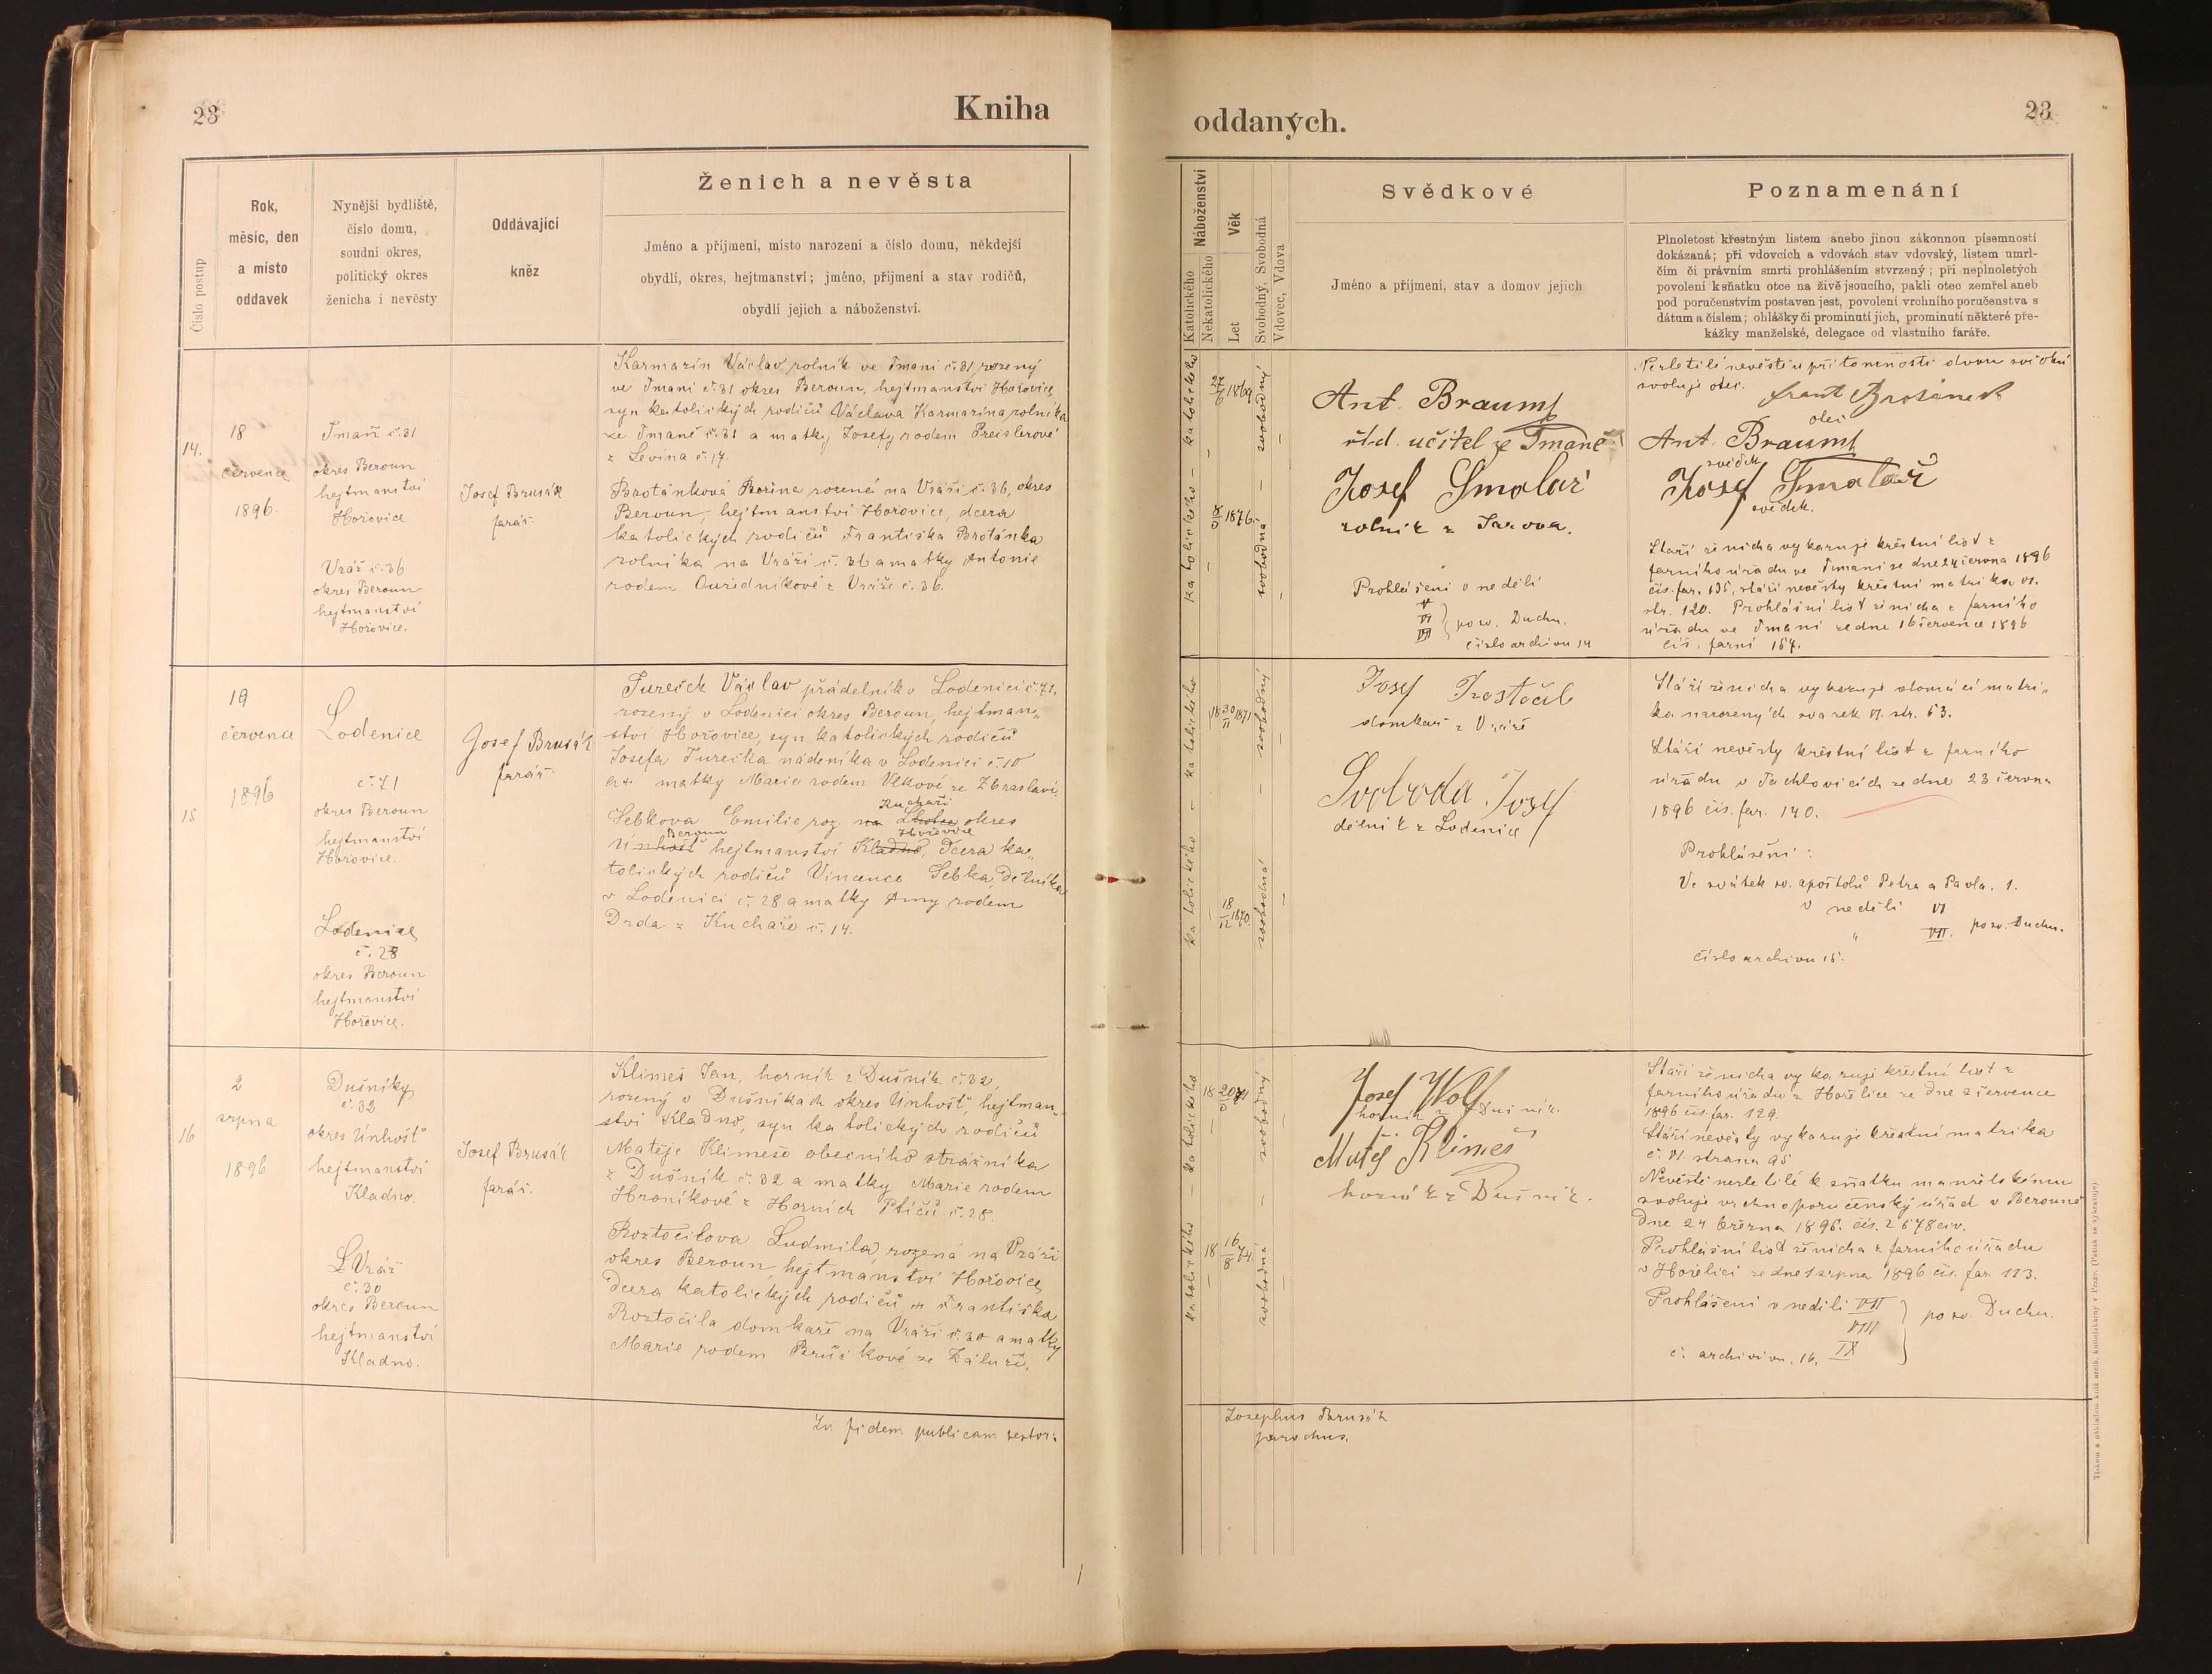 23
Kniha
Číslo postup
Rok,
měsíc, den
a místo
oddavek
Nynější bydliště,
číslo domu,
soudní okres,
politický okres
ženicha i nevěsty
Oddávající
kněz
Ženich a nevěsta
Jméno a příjmení, místo narození a číslo domu, někdejší
obydlí, okres, hejtmanství; jméno, příjmení a stav rodičů,
obydlí jejich a náboženství.
14.
18
července
1896.
Tmaň č. 31
okres Beroun
hejtmanství
Hořovice
Vráž č. 36
okres Beroun
hejtmanství
Hořovice.
Josef Brusák
farář.
Karmazín Václav, rolník ve Tmani č. 31 rozený
ve Tmani č. 31 okres Beroun, hejtmanství Hořovice,
syn katolických rodičů Václava Karmazina rolníka
ze Tmaně č. 31 a matky Josefy rodem Preislerové
z Levína č. 17.
Brotánková rozená na Vráži č. 36, okres
Beroun, hejtmanství Hořovice, dcera
katolických rodičů Františka Brotánka
rolníka na Vráži č. 36 a matky Antonie
rodem z Vráže č. 36.
15
19
července
1896
Lodenice
č. 71
okres Beroun
hejtmanství
Hořovice.
Lodenice
č. 28
okres Beroun
hejtmanství
Hořovice.
Josef Brusák
farář.
Tureček Václav přádelník v Lodenici č. 71.
rozený v Lodenici okres Beroun, hejtman„
ství Hořovice, syn katolických rodičů
Josefa Turečka nádeníka v Lodenici č. 10
a matky Marie rodem Vlkové ze Zbraslavi.
Kuchaři
Sebkova Emilie roz. na Lhotce okres
Beroun Hořovice
Unhošť hejtmanství Kladno, dcera ka„
tolických rodičů Vincence Sebka, dělníka
v Lodenici č. 28 a matky Anny rodem
Drda z Kuchaře č. 14.
16
2
srpna
1896
Dušníky
č. 32
okres Unhošť
hejtmanství
Kladno.
Vráž
č. 30
okres Beroun
hejtmanství
Kladno.
Josef Brusák
farář.
Klimeš Jan, horník z Dušník č. 32,
rozený v Dušníkách okres Unhošť, hejtman„
ství Kladno, syn katolických rodičů
Matěje Klimeše obecního strážníka
z Dušník č. 32 a matky Marie rodem
Hroníkové z Horních Ptičů č. 28.
Roztočilova Ludmila rozená na Vráži
okres Beroun, hejtmanství Hořovice,
dcera katolických rodičů Františka
Roztočila domkaře na Vráži č. 30 a matky
Marie rodem ze Záluží.
In fidem publicam testor:
oddaných.
23
Náboženství
Katolického
Nekatolického
Věk
Let
Svobodný, Svobodná
Vdovec, Vdova
Svědkové
Jméno a příjmení, stav a domov jejich
Poznamenání
Plnoletost křestným listem anebo jinou zákonnou písemností
dokázaná; při vdovcích a vdovách stav vdovský, listem umrl-
čím či právním smrti prohlášením stvrzený; při neplnoletých
povolení k sňatku otce na živě jsoucího, pakli otec zemřel aneb
pod poručenstvím postaven jest, povolení vrchního poručenstva s
dátum a číslem; ohlášky či prominutí jich, prominutí některé pře-
kážky manželské, delegace od vlastního faráře.
katolického – katolického
27/6 1869
8/5 1876
svobodná – svobodný
Ant. Brauml
učitel ze Tmaně
Josef Smolař
rolník z Jarova.
Prohlášení v neděli
V
VI
VII
po sv. Duchu.
číslo archivu 14
Nezletilé nevěstě u přítomnosti dvou svědků
svoluje otec.
otec
Ant. Brauml
svědek
Josef Smolař
svědek.
Staří ženicha vykazuje křestní list z
farního úřadu ve Tmani ze dne června 1896
čís. far. 135, stáří nevěsty křestní matrika VI.
str. 120. Prohlášní list ženicha z farního
úřadu ve Tmani ze dne 16 července 1896
čís. farní 157.
katolického – katolického
18 30/11 1871
18/12 1870.
svobodná – svobodný
Josef Roztočil
domkař z Vráže
Svoboda Josef
dělník z Lodenice
Stáří ženicha vykazuje domácí matri„
ka narozených svazek VI. str. 63.
Stáří nevěsty křestní list z farního
úřadu v Tachlovicích ze dne 23 června
1896 čís. far. 140.
Prohlášení:
Ve svátek sv. apoštolů Petra a Pavla. 1.
V neděli VI
„ VII. po sv. Duchu.
číslo archivu 15.
katolického – katolického
18 20/5 71
18 16/8 74.
svobodná – svobodný
Josef Wolf
horník z Dušník.
Matěj Klimeš
horník z Dušník.
Staří ženicha vykazuje křestní list z
farního úřadu z Hořelice ze dne 2 července
1896 čís. far. 129.
Stáří nevěsty vykazuje křestní matrika
č. VI. strana 95
Nevěstě nezletilé k sňatku manželskému
svoluje vrchnoporučenský úřad v Berouně
dne 24 března 1896. čís. 2678 civ.
Prohlášní list ženicha z farního úřadu
v Hořelici ze dne 1 srpna 1896 čís. far. 113.
Prohlášení v neděli VII
VIII
IX
po sv. Duchu.
č. archivu. 16.
Josephus Brusák
parochus.